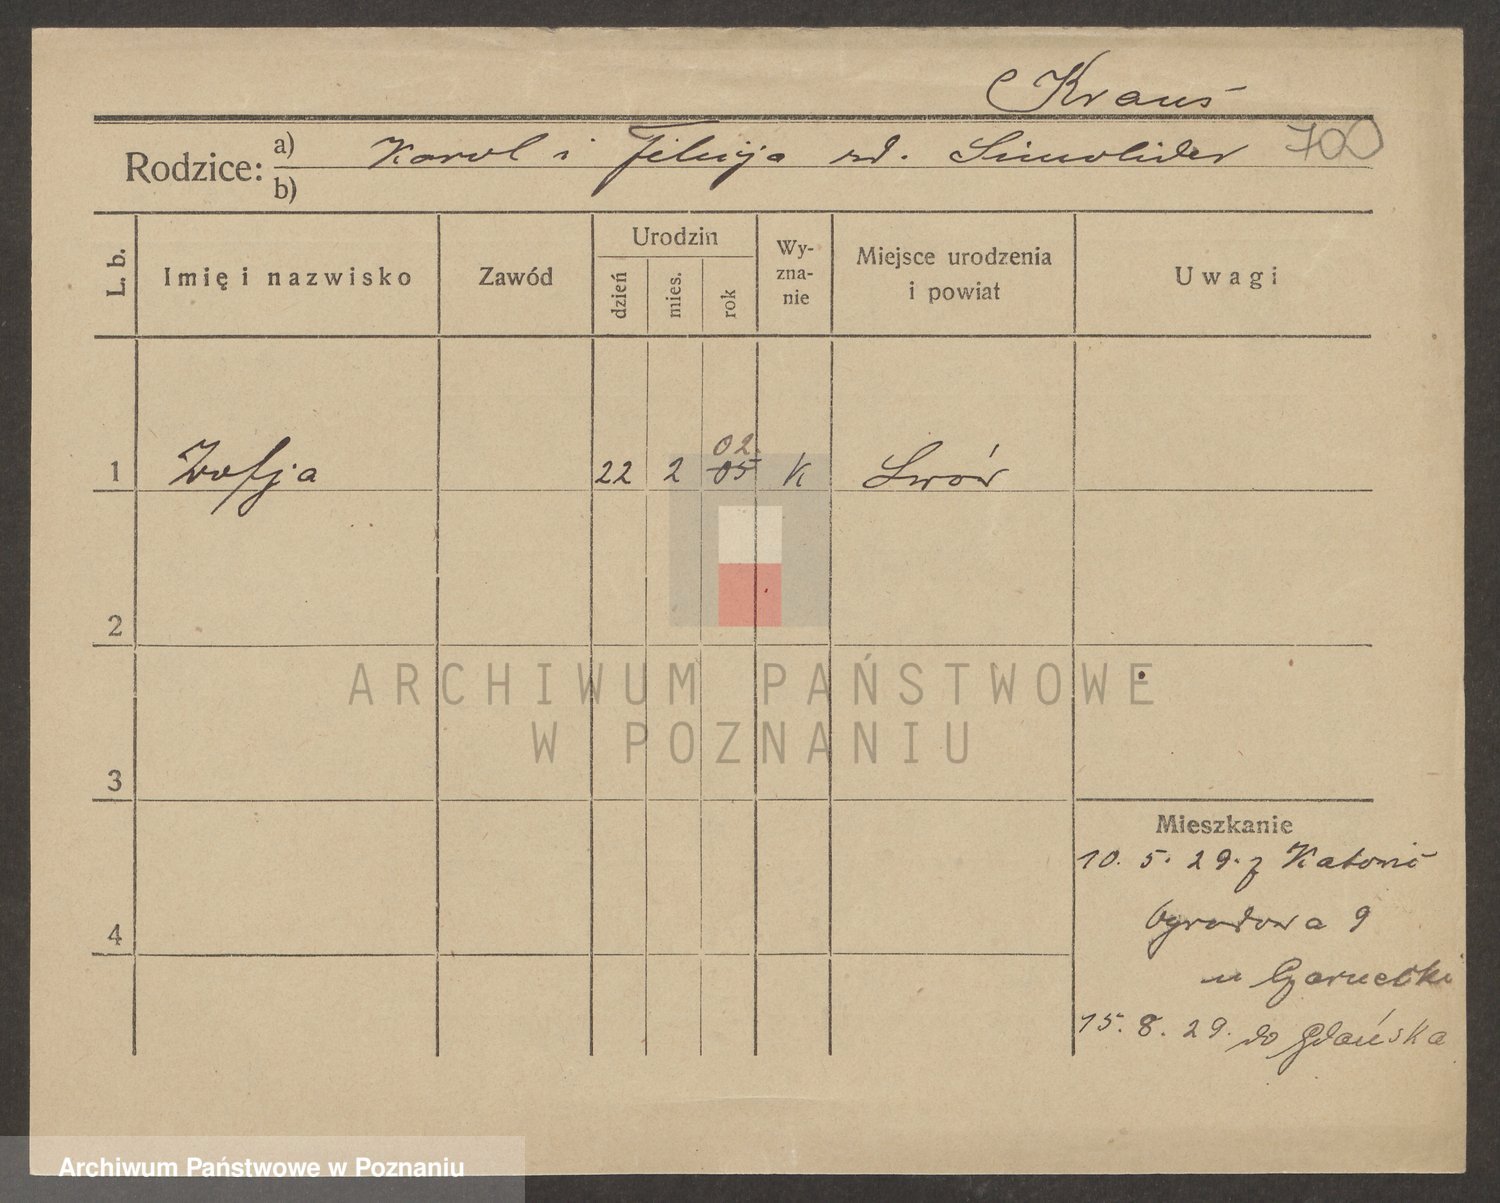 Kraus
Rodzice: a) Karol i Felicja zd. 700
b)
L. b. Imię i nazwisko Zawód Urodzin dzień mies. rok Wy-zna-nie Miejsce urodzenia i powiat Uwagi
02
1 Zofja 22 2 05 K Lwów
2
ARCHIWUM PAŃSTWOWE
W POZNANIU
3
Mieszkanie
10. 5. 29. z Katowic
4 Ogrodowa 9
u
15. 8. 29. do Gdańska
Archiwum Państwowe w Poznaniu